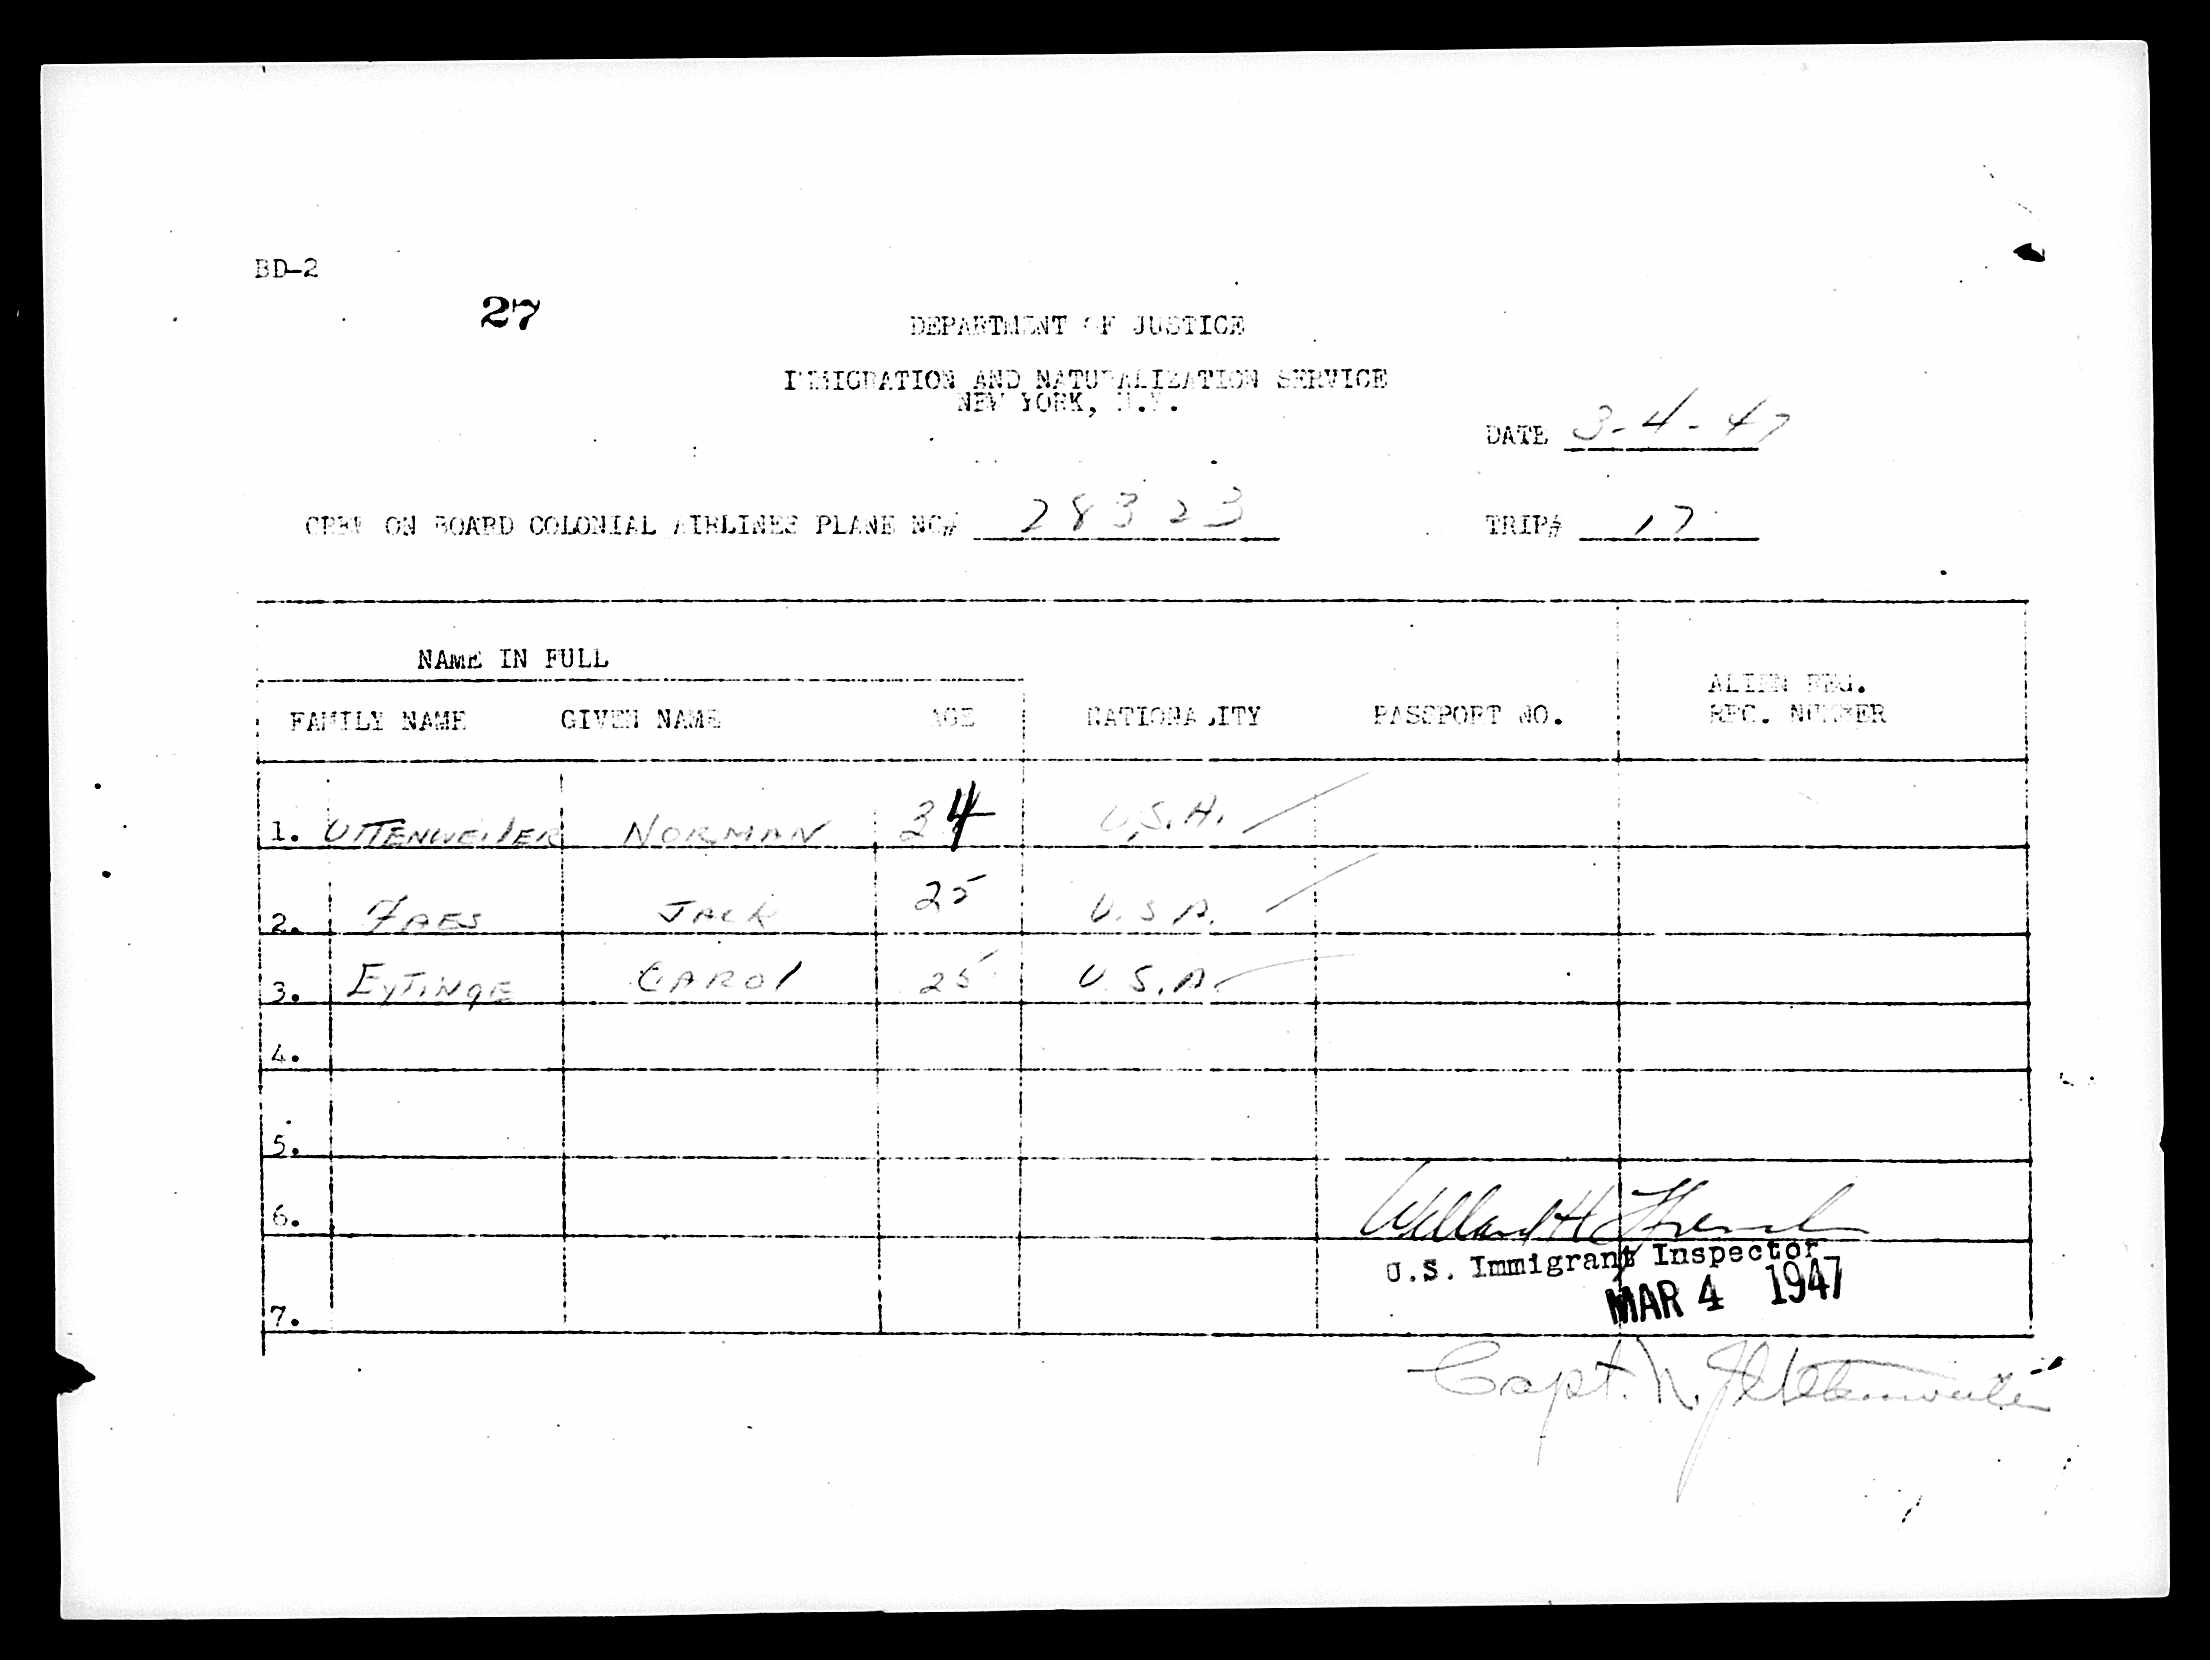 BD-2
27
DEPARTMENT OF JUSTICE
IMMIGRATION AND NATURALIZATION SERVICE
NEW YORK, N.Y.
DATE 3-4-47
CREW ON BOARD COLONIAL AIRLINES PLANE NO# 28323 TRIP# 17
NAME IN FULL
FAMILY NAME GIVEN NAME AGE NATIONALITY PASSPORT NO. ALIEN REG.
REC. NUMBER
1. UTTENWEILER NORMAN 34 U.S.A.
2. FAES JACK 25 U.S.A.
3. EYTINGE CAROL 25 U.S.A.
4.
5.
6.
Willard H. French
U.S. Immigrant Inspector
MAR 4 1947
7.
Capt. N. J. Uttenweiler